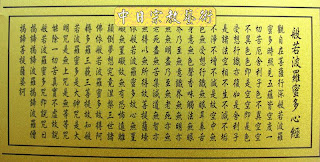 中日宗教藝術
般若波羅蜜多心經
觀自在菩薩行深般若波羅
蜜多時照見五蘊皆空度一
切苦厄舍利子色不異空空
不異色色即是空空即是色
受想行識亦復如是舍利子
是諸法空相不生不滅不垢
不淨不增不減是故空中無
色無受想行識無眼耳鼻舌
身意無色聲香味觸法無眼
界乃至無意識界無無明亦
無無明盡乃至無老死亦無
老死盡無苦集滅道無智亦
無得以無所得故菩提薩埵
依般若波羅蜜多故心無罣
礙無罣礙故無有恐怖遠離
顛倒夢想究竟涅槃三世諸
佛依般若波羅蜜多故得阿
耨多羅三藐三菩提故知般
若波羅蜜多是大神咒是大
明咒是無上咒是無等等咒
能除一切苦真實不虛故說
般若波羅蜜多咒即說咒曰
揭諦揭諦波羅揭諦波羅僧
揭諦菩提薩婆訶